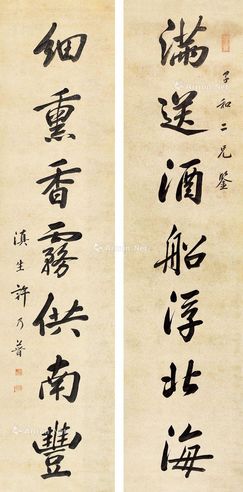 滿送酒船浮北海
子和二兄鑒
細熏香霧供南豐
滇生許乃普